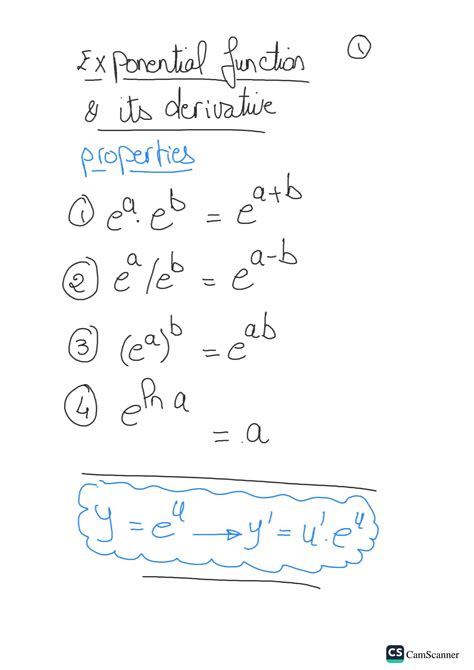 Exponential function ①
& its derivative
properties
① eᵃ · eᵇ = eᵃ⁺ᵇ
② eᵃ / eᵇ = eᵃ⁻ᵇ
③ (eᵃ)ᵇ = eᵃᵇ
④ e^ln a
= a
y = eᵘ → y' = u' · eᵘ
CS CamScanner